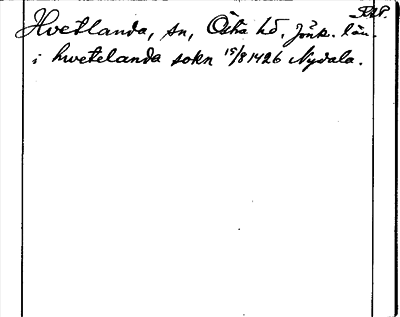 Hvetlanda, sn, Östra hd, Jönk. län.
i hwetelanda sokn 15/8 1426 Nydala.